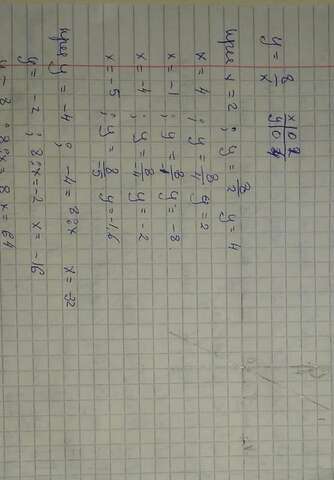 y = 8/x
x 0 2
y 0 4
при x = 2 ; y = 8/2 y = 4
x = 4 ; y = 8/4 y = 2
x = -1 ; y = 8/1 y = -8
x = -4 ; y = 8/4 y = -2
x = -5 ; y = 8/5 y = -1,6
при y = -4 ; -4 = 8:x x = -32
y = -2 ; 8:x = -2 x = -16
y = 8 ; 8:x = 8 x = 64